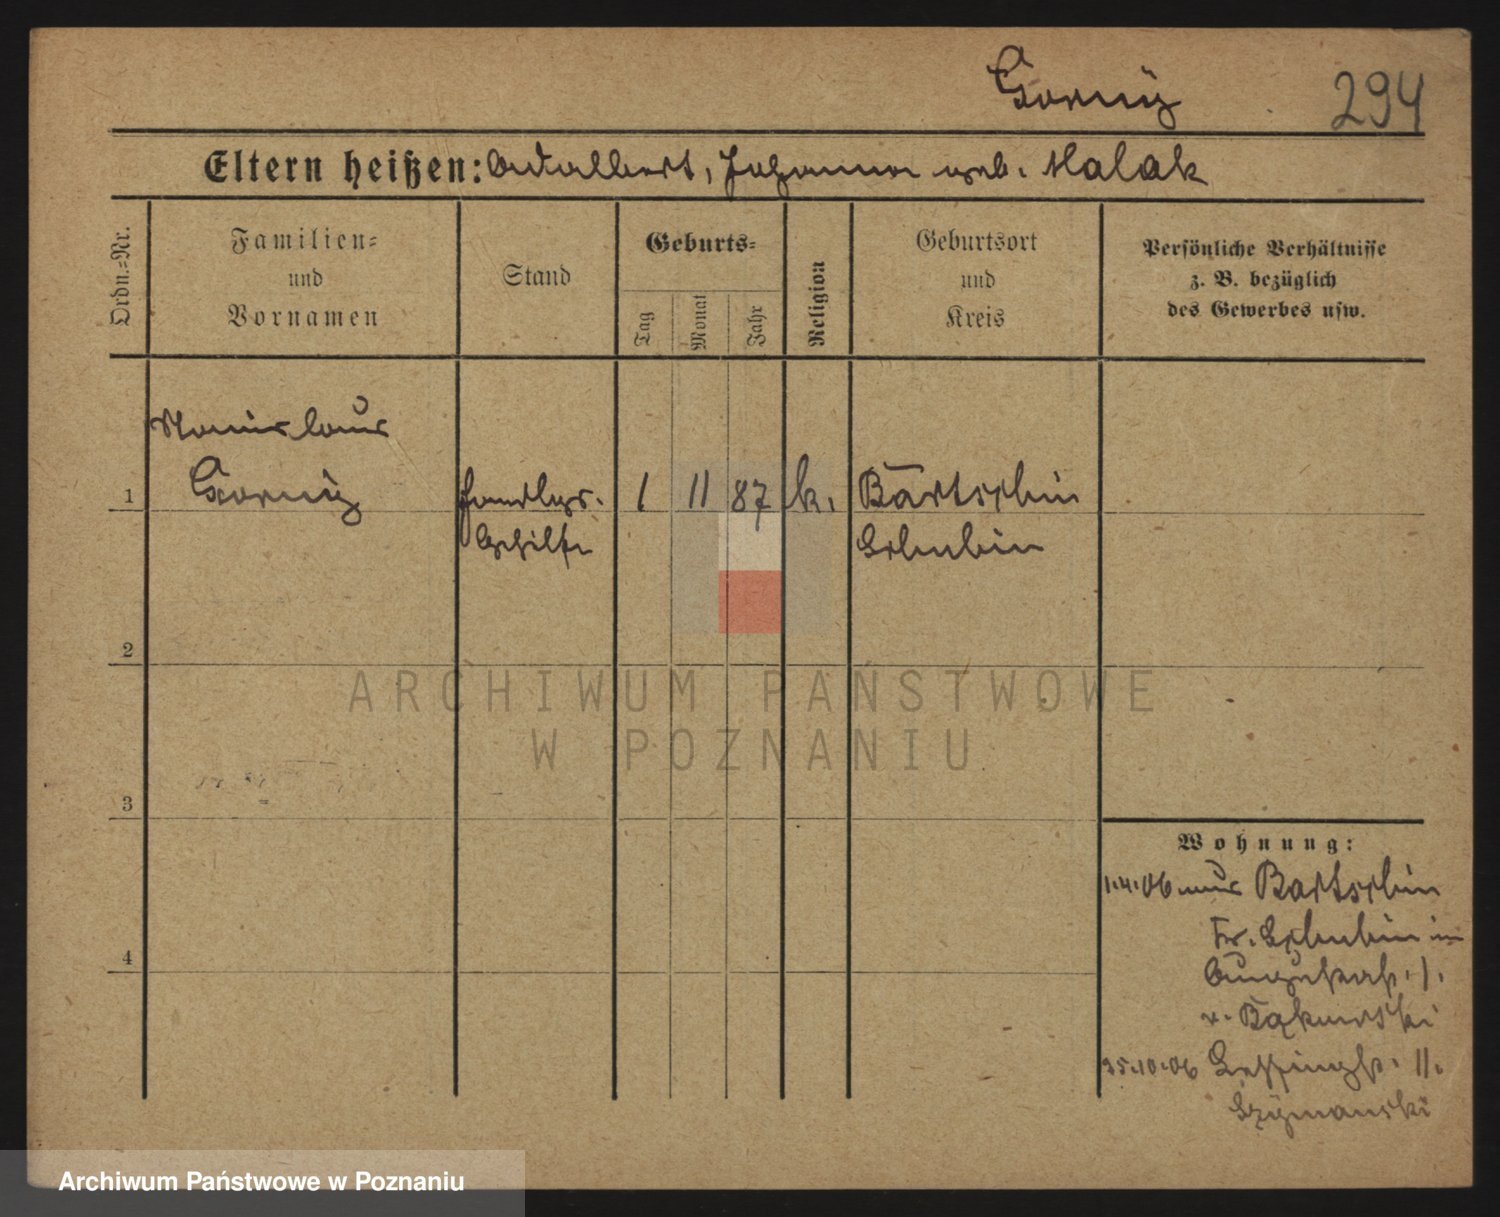 Gorny
294
Eltern heißen: Adalbert, Johanna geb. Malak
Ordn.-Nr.
Familien-
und
Vornamen
Stand
Geburts-
Tag
Monat
Jahr
Religion
Geburtsort
und
Kreis
Persönliche Verhältnisse
z. B. bezüglich
des Gewerbes usw.
Stanislaus
1
Gorny
Handlgs.
Gehilfe
1
11
87
k.
Bartschin
Schubin
2
3
4
ARCHIWUM PAŃSTWOWE
W POZNANIU
Wohnung:
1.4.06 aus Bartschin
Kr. Schubin in
Augustastr. 1.
v. Bąkowski
25.10.06 Lessingstr. 11.
Szymanski
Archiwum Państwowe w Poznaniu